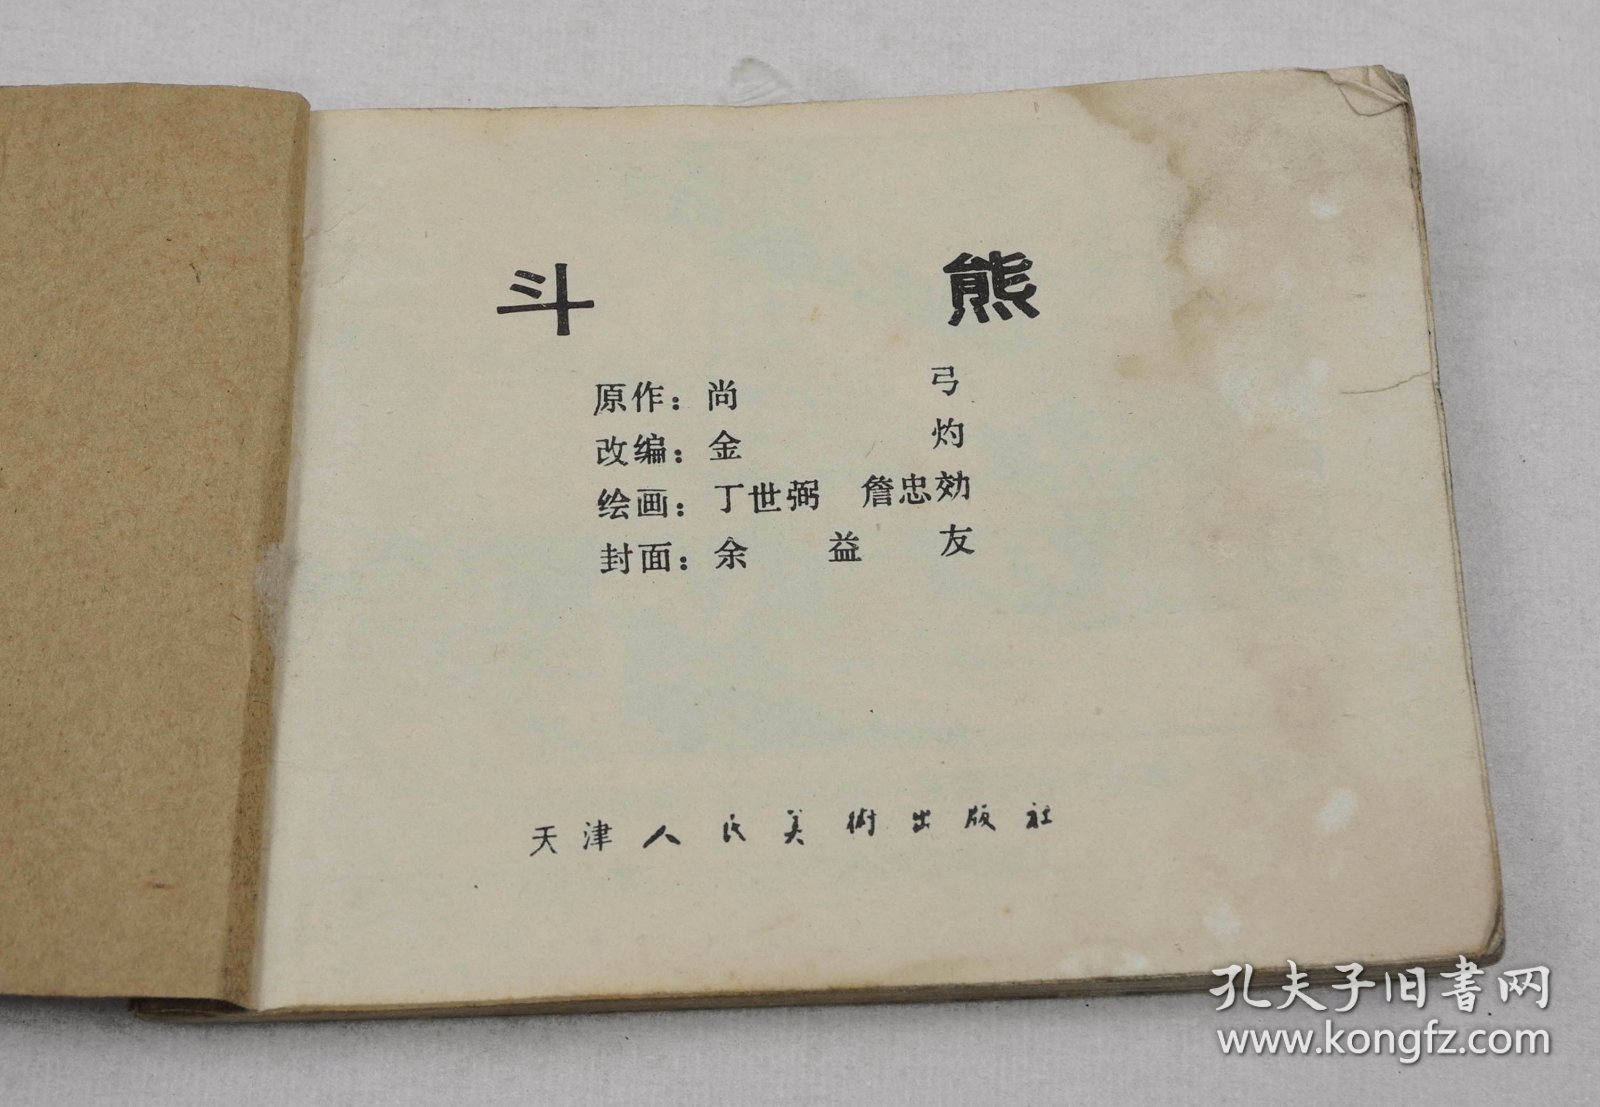 斗 熊
原作：尚 弓
改编：金 灼
绘画：丁世弼 詹忠効
封面：余益友
天津人民美術出版社
孔夫子旧書网
www.kongfz.com